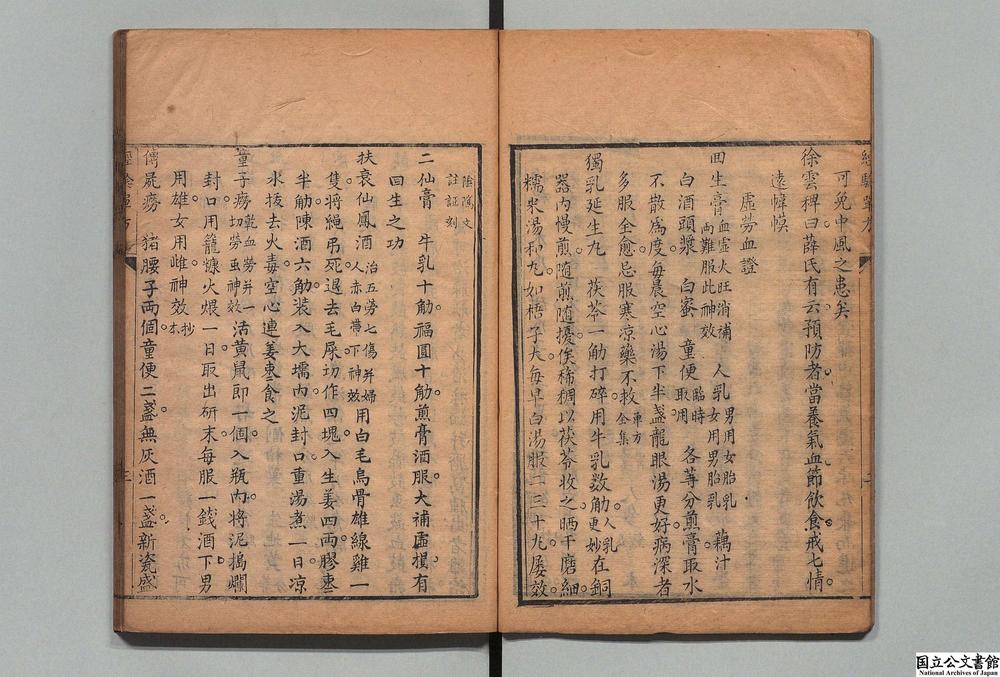 可免中風之患矣
徐雲稗曰薛氏有云預防者當養氣血節飲食戒七情
遠幃幙
虛勞血證
回生膏 血虛火旺消補兩難服此神效 人乳 男用女胎乳女用男胎乳 藕汁
白酒頭漿 白蜜 童便 臨時取用 各等分煎膏取水
不散為度每晨空心湯下半盞龍眼湯更好病深者
多服全愈忌服寒涼藥不救 東方全集
獨乳延生丸 茯苓一觔打碎用牛乳數觔 人乳更妙 在銅
器內慢煎隨煎隨擾俟稀稠以茯苓收之晒干磨細
糯米湯和丸如梧子大每早白湯服二三十丸屡效
陰隲文註証刻
二仙膏 牛乳十觔福圓十觔煎膏酒服大補虛損有
回生之功
扶衰仙鳳酒 治五勞七傷并婦人赤白帶下神效 用白毛烏骨雄線雞一
隻將繩弔死退去毛屎切作四塊入生姜四兩膠棗
半觔陳酒六觔装入大壜內泥封口重湯煮一日凉
水拔去火毒空心連姜棗食之
童子癆 乾血勞并一切勞虫神效 活黄鼠即一個入瓶內將泥搗爛
封口用籠糠火煨一日取出研末每服一錢酒下男
用雄女用雌神效 抄本
傳屍癆 猪腰子兩個童便二盞無灰酒一盞新瓷盛
国立公文書館
National Archives of Japan